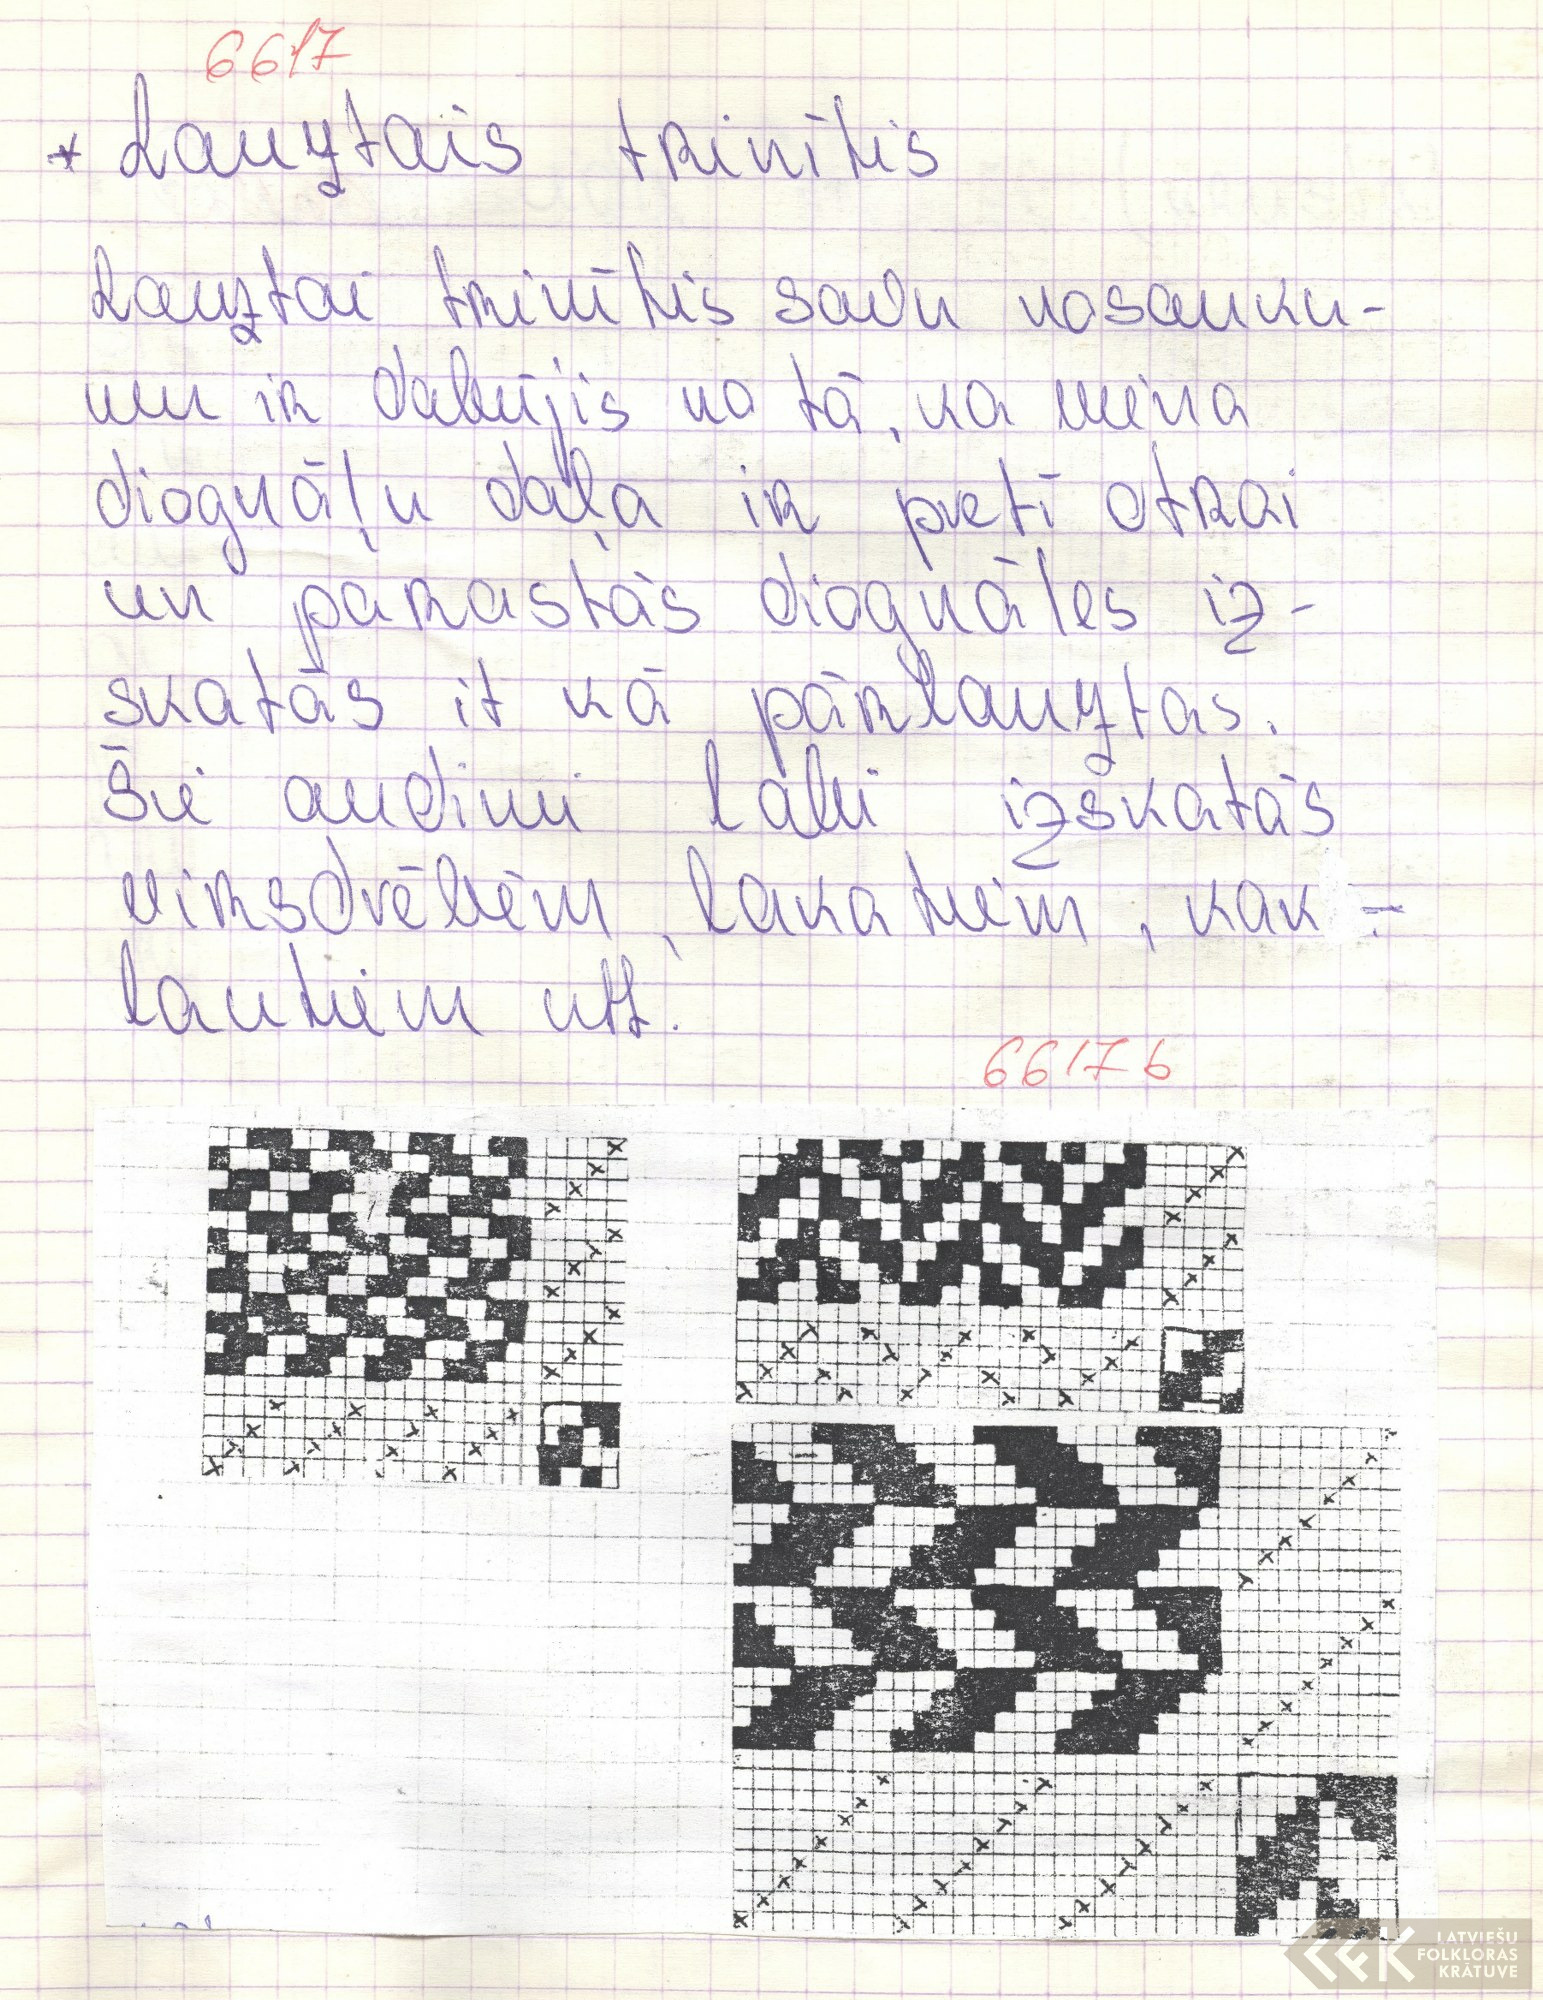 6617
* Lauztais trinītis
Lauztai trinītis savu nosauku-
mu ir dabūjis no tā, ka viena
diognāļu daļa ir pretī otrai
un parastās diognāles iz-
skatās it kā pārlauztas.
Šie audumi labi izskatās
virsdrēbēm, lakatiem, kak-
lautiem utt.
6617 b
LATVIEŠU
FOLKLORAS
KRĀTUVE